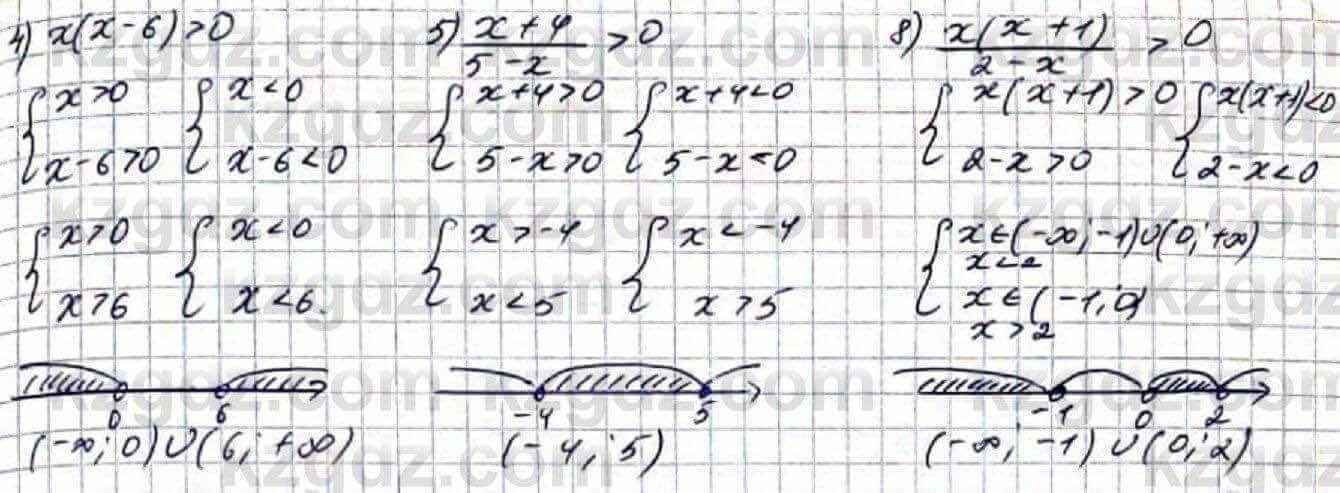 4) x(x-6)>0
{ x>0
x-6>0
{ x<0
x-6<0
{ x>0
x>6
{ x<0
x<6
0 6
(-∞; 0)∪(6; +∞)
5) x+4 / 5-x > 0
{ x+4>0
5-x>0
{ x+4<0
5-x<0
{ x>-4
x<5
{ x<-4
x>5
-4 5
(-4; 5)
8) x(x+1) / 2-x > 0
{ x(x+1)>0
2-x>0
{ x(x+1)<0
2-x<0
{ x∈(-∞; -1)∪(0; +∞)
x<2
x∈(-1; 0)
x>2
-1 0 2
(-∞; -1)∪(0; 2)
kzgdz.com